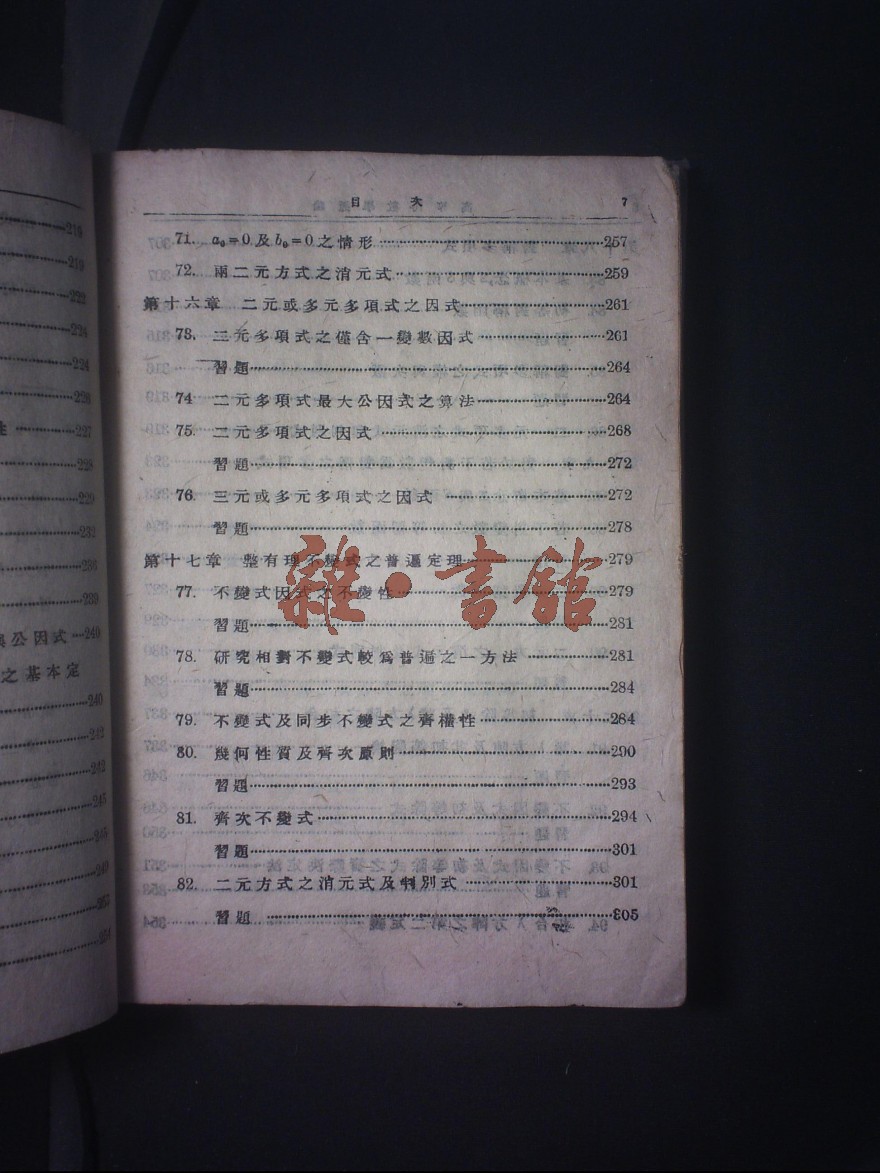 219
219
222
223
224
226
227
228
229
232
238
239
與公因式 240
之基本定
240
242
242
245
246
249
253
254
目 次 7
71. a₀=0及b₀=0之情形 257
72. 兩二元方式之消元式 259
第十六章 二元或多元多項式之因式 261
73. 三元多項式之僅含一變數因式 261
習題 264
74 二元多項式最大公因式之算法 264
75. 二元多項式之因式 268
習題 272
76. 三元或多元多項式之因式 272
習題 278
第十七章 整有理不變式之普遍定理 279
77. 不變式因式之不變性 279
習題 281
78. 研究相對不變式較爲普遍之一方法 281
習題 284
79. 不變式及同步不變式之齊權性 284
80. 幾何性質及齊次原則 290
習題 293
81. 齊次不變式 294
習題 301
82. 二元方式之消元式及判別式 301
習題 305
雜·書館